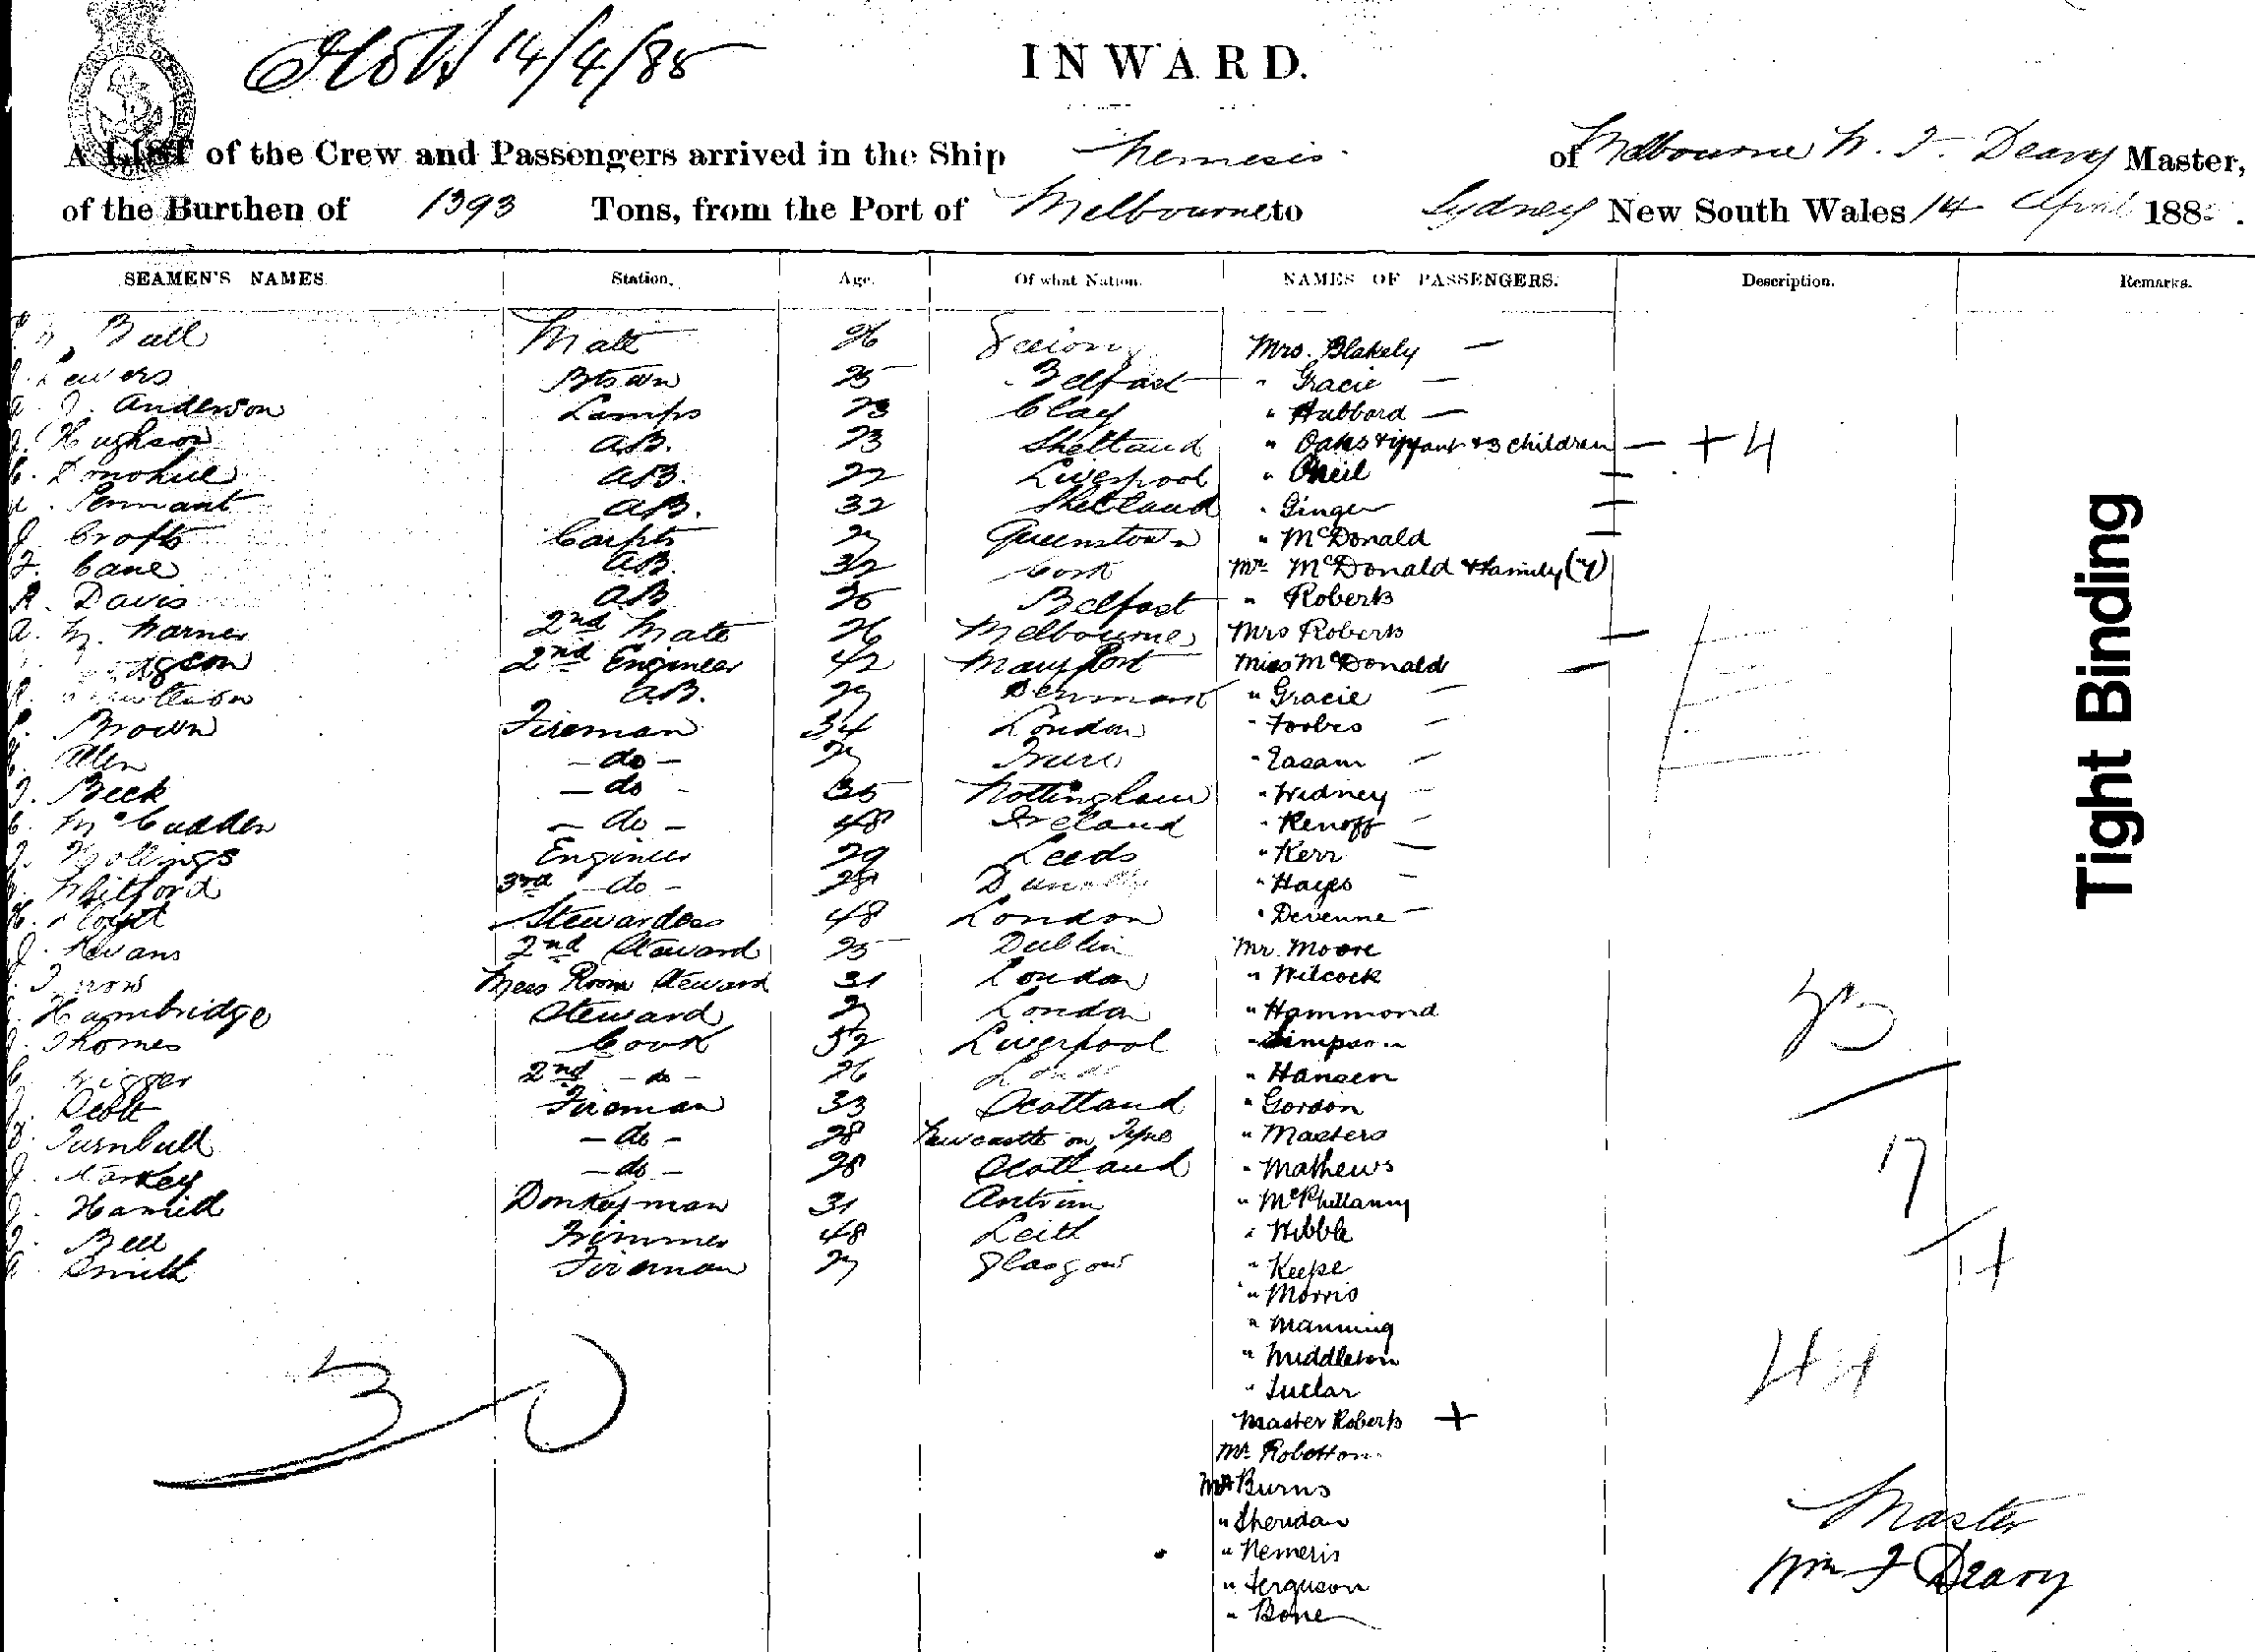 14/4/85
INWARD.
A LIST of the Crew and Passengers arrived in the Ship Nemesis of Melbourne W. F. Deary Master,
of the Burthen of 1393 Tons, from the Port of Melbourne to Sydney New South Wales 14 April 188
SEAMEN'S NAMES. Station. Age. Of what Nation. NAMES OF PASSENGERS. Description. Remarks.
Bull Mate 26 Mrs. Blakely —
Btswn 25 Belfast " Gracie —
A. J. Anderson Lamps 23 Clay " Hubbard —
J. Hughson A.B. 23 Shetland " Oaks & infant & 3 children — + 4
C. Donohue A.B. 22 Liverpool " Oneil —
Pennant A.B. 32 Shetland " Ginger —
J. Crofts Carptr 27 Queenstown " McDonald —
F. Cane A.B. 32 Cork Mr McDonald & family (7)
R. Davis A.B. 26 Belfast " Roberts
A. M. Warner 2nd Mate 26 Melbourne Mrs Roberts —
2nd Engineer 42 Maryport Miss McDonald —
A.B. 27 Denmark " Gracie —
Brown Fireman 34 London " Forbes —
Allen — do — 27 " Easam —
J. Beck — do - 35 Nottingham " Widney —
C. McCudden — do — 48 Ireland " Kenoff —
J. Hollings Engineer 29 Leeds " Kerr —
Whitford 3rd — do — 28 " Hayes —
H. Stewardess 48 London " Devenne —
J. Kevans 2nd Steward 25 Dublin Mr. Moore
Mess Room Steward 31 London " Wilcock
Hambridge Steward 27 London " Hammond
Thomes Cook 52 Liverpool " Simpson
2nd — do — 26 " Hansen
J. Scott Fireman 33 Scotland " Gordon
Turnbull — do — 28 Newcastle on Tyne " Masters
J. Markey — do — 28 Scotland " Mathews
J. Hamill Donkeyman 31 Antrim " McPhillamy
J. Bell Trimmer 48 Leith " Nibble
A. Smith Fireman 27 Glasgow " Keepe
" Morris
" Manning
" Middleton
" Luclar
Master Roberts +
Mr. Robottom
Mr Burns
" Sheridan
" Nemeris
" Ferguson
" Bone
30
17
44
Master
Wm F Deary
Tight Binding